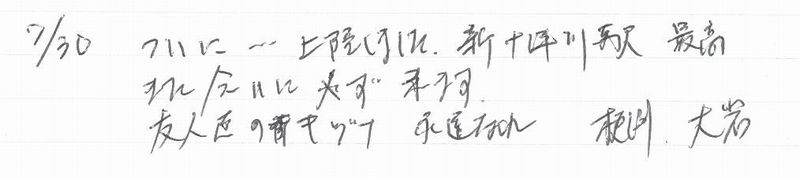 7/30 ついに… 上陸しました. 新十津川駅 最高
また会いに必ず来ます.
友人達のキヅナ 永遠なれ 大岩